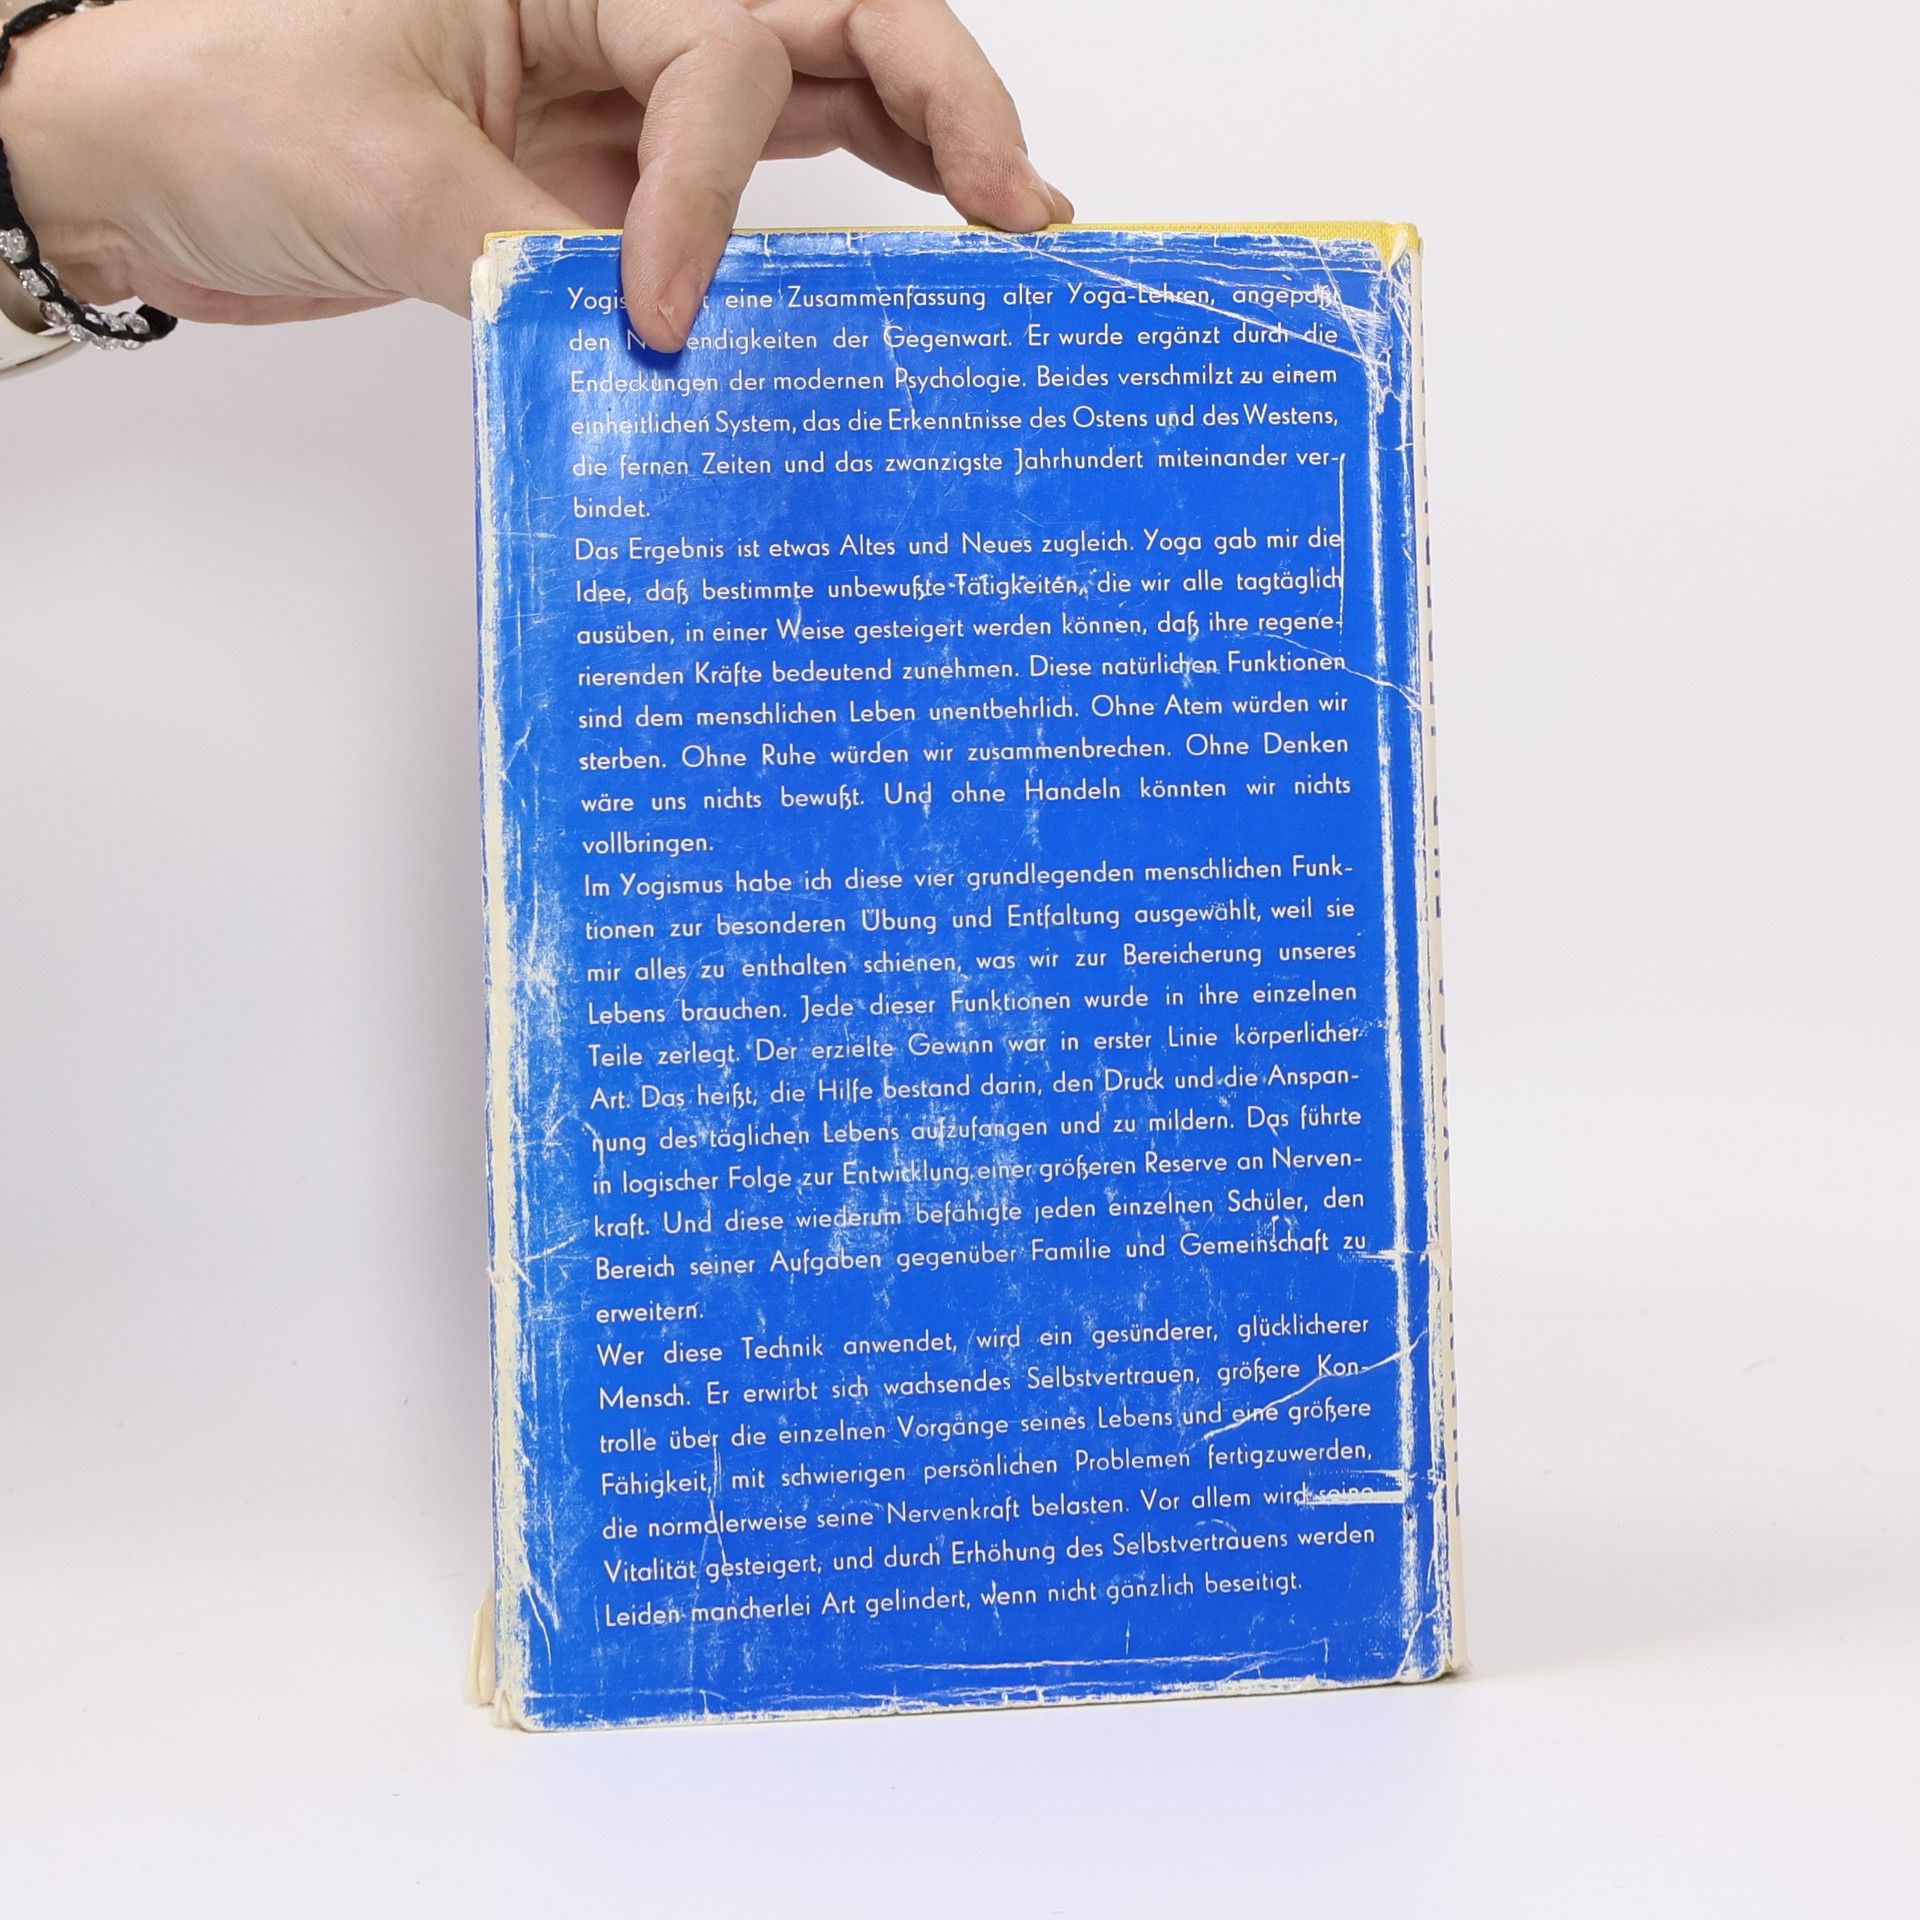 eine Zusammenfassung alter Yoga-Lehren, angepaßt
den endigkeiten der Gegenwart. Er wurde ergänzt durch die
Endeckungen der modernen Psychologie. Beides verschmilzt zu einem
einheitlichen System, das die Erkenntnisse des Ostens und des Westens,
die fernen Zeiten und das zwanzigste Jahrhundert miteinander ver-
bindet.
Das Ergebnis ist etwas Altes und Neues zugleich. Yoga gab mir die
Idee, daß bestimmte unbewußte Tätigkeiten, die wir alle tagtäglich
ausüben, in einer Weise gesteigert werden können, daß ihre regene-
rierenden Kräfte bedeutend zunehmen. Diese natürlichen Funktionen
sind dem menschlichen Leben unentbehrlich. Ohne Atem würden wir
sterben. Ohne Ruhe würden wir zusammenbrechen. Ohne Denken
wäre uns nichts bewußt. Und ohne Handeln könnten wir nichts
vollbringen.
Im Yogismus habe ich diese vier grundlegenden menschlichen Funk-
tionen zur besonderen Übung und Entfaltung ausgewählt, weil sie
mir alles zu enthalten schienen, was wir zur Bereicherung unseres
Lebens brauchen. Jede dieser Funktionen wurde in ihre einzelnen
Teile zerlegt. Der erzielte Gewinn war in erster Linie körperlicher
Art. Das heißt, die Hilfe bestand darin, den Druck und die Anspan-
nung des täglichen Lebens aufzufangen und zu mildern. Das führte
in logischer Folge zur Entwicklung einer größeren Reserve an Nerven-
kraft. Und diese wiederum befähigte jeden einzelnen Schüler, den
Bereich seiner Aufgaben gegenüber Familie und Gemeinschaft zu
erweitern.
Wer diese Technik anwendet, wird ein gesünderer, glücklicherer
Mensch. Er erwirbt sich wachsendes Selbstvertrauen, größere Kon-
trolle über die einzelnen Vorgänge seines Lebens und eine größere
Fähigkeit, mit schwierigen persönlichen Problemen fertigzuwerden,
die normalerweise seine Nervenkraft belasten. Vor allem wird seine
Vitalität gesteigert, und durch Erhöhung des Selbstvertrauens werden
Leiden mancherlei Art gelindert, wenn nicht gänzlich beseitigt.